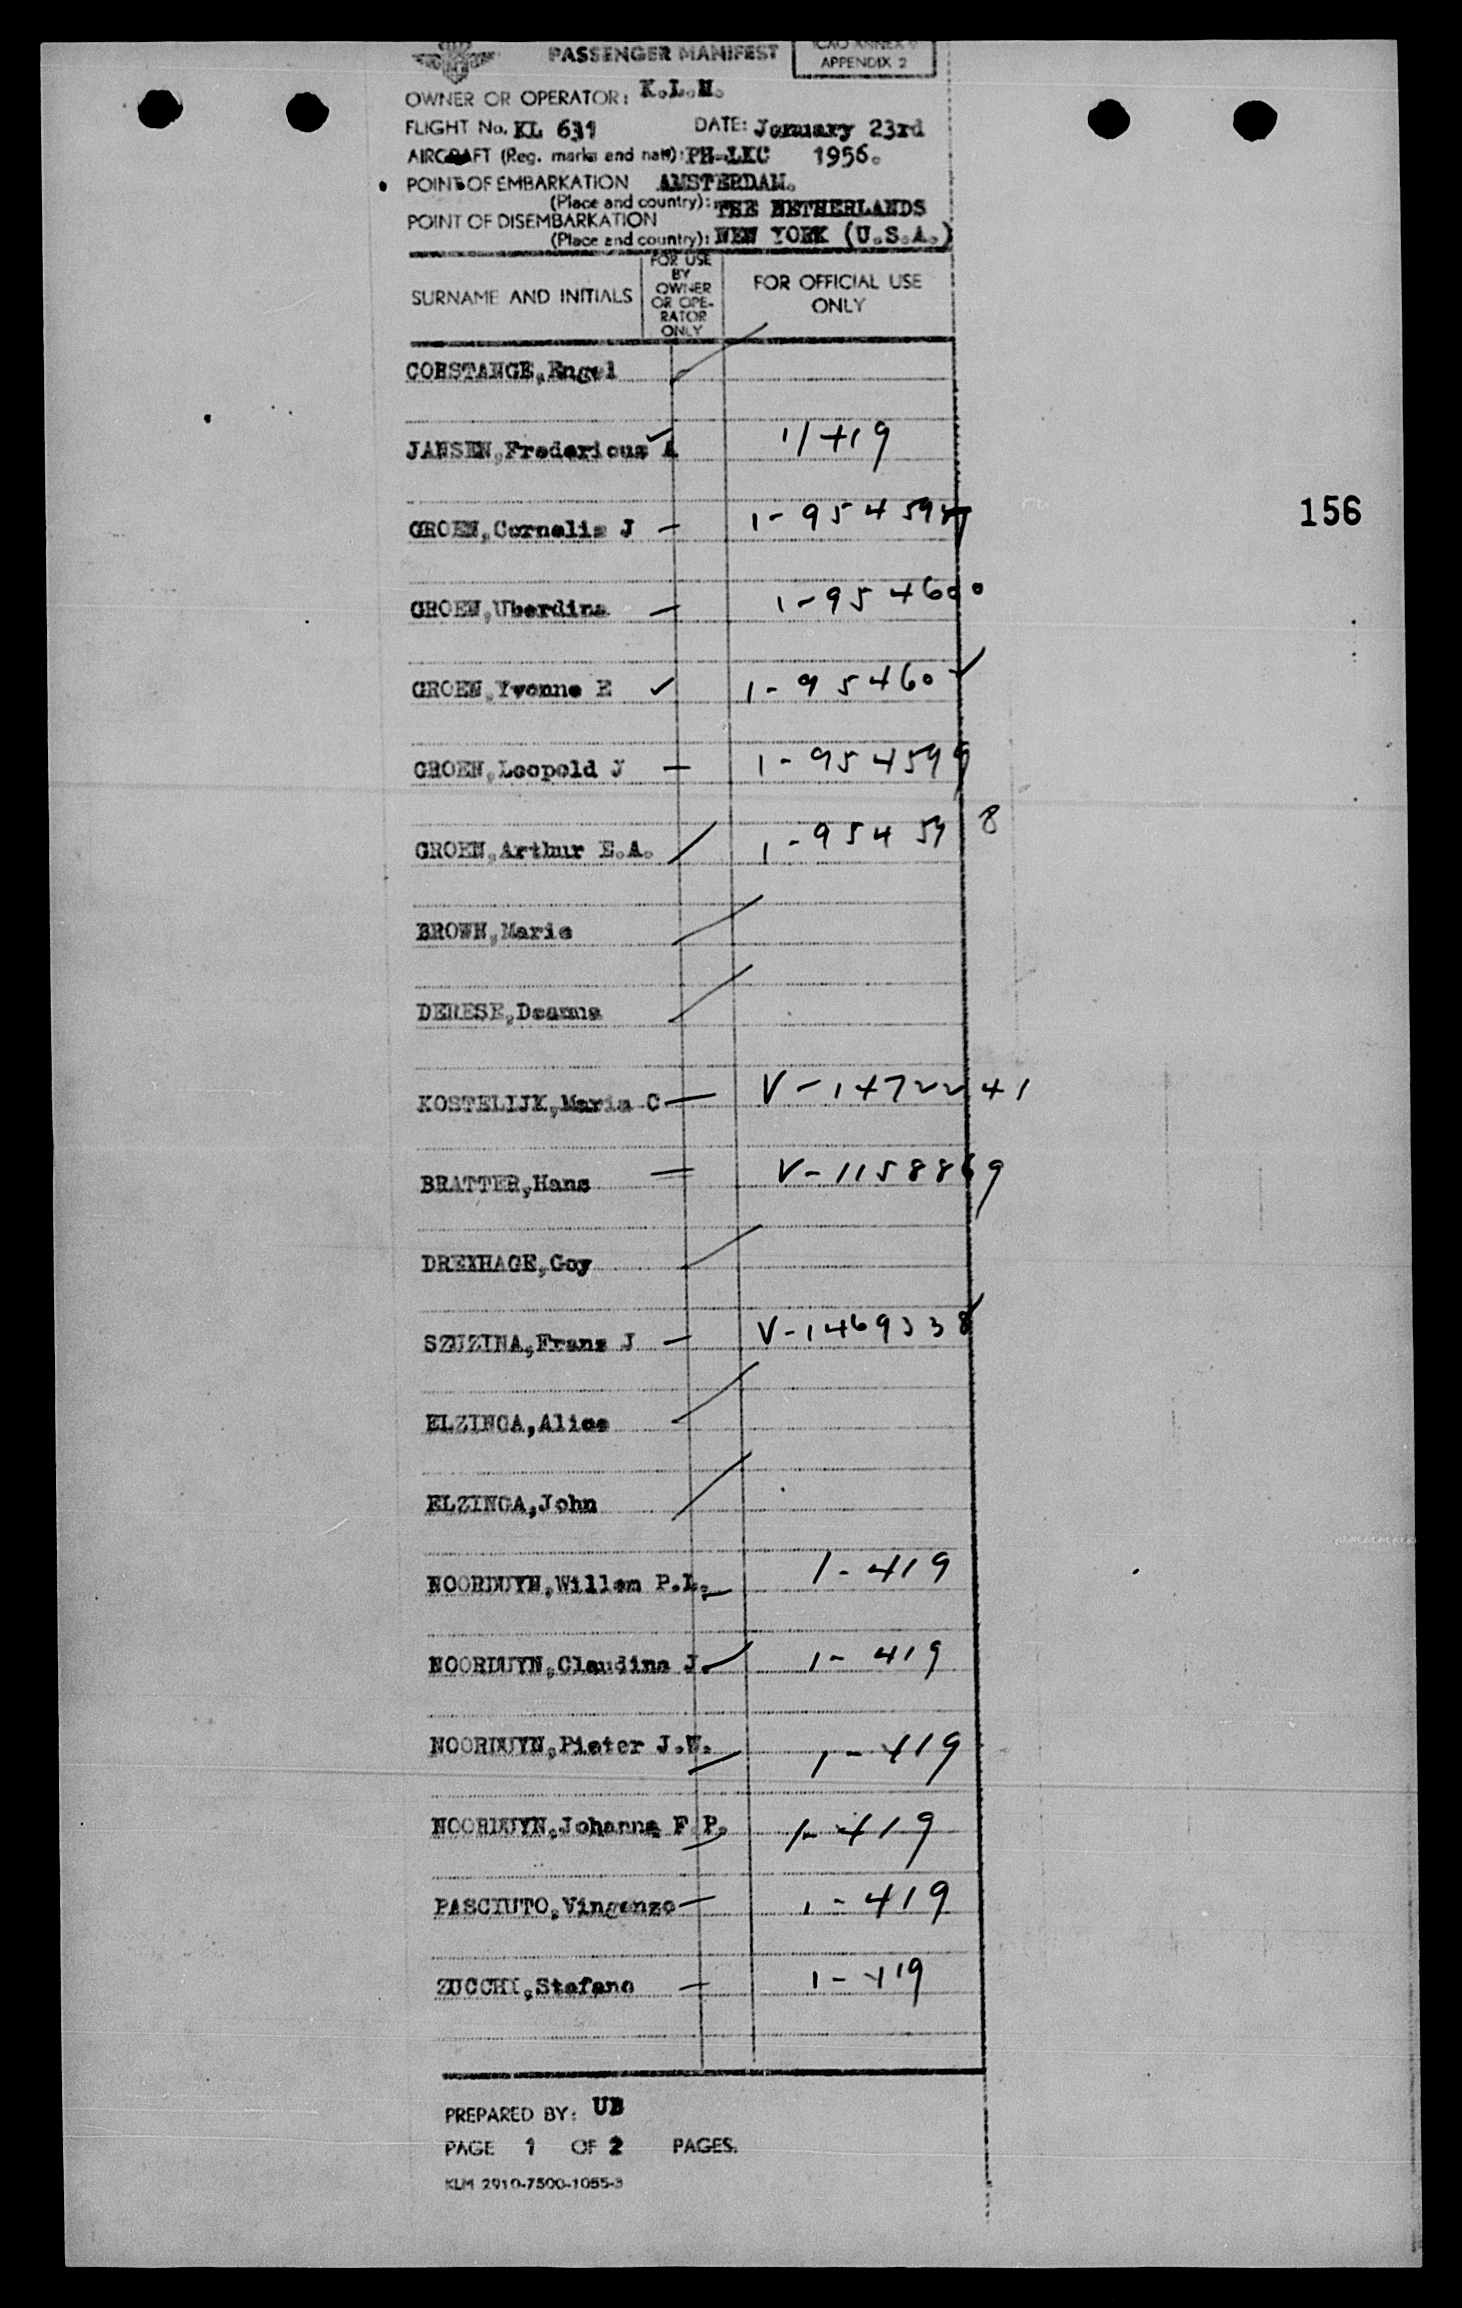 PASSENGER MANIFEST
ICAO ANNEX 9
APPENDIX 2
OWNER OR OPERATOR: K.L.M.
FLIGHT No. KL 631 DATE: January 23rd
AIRCRAFT (Reg. marks and nat): PH-LKC 1956.
POINT OF EMBARKATION AMSTERDAM.
(Place and country): THE NETHERLANDS
POINT OF DISEMBARKATION
(Place and country): NEW YORK (U.S.A.)
SURNAME AND INITIALS
FOR USE
BY
OWNER
OR OPE-
RATOR
ONLY
FOR OFFICIAL USE
ONLY
CORSTANGE, Engel
JANSEN, Fredericus A 1/419
156
GROEN, Cornelis J 1-954594
GROEN, Uberdina 1-954600
GROEN, Yvonne E 1-95460
GROEN, Leopold J 1-954599
GROEN, Arthur E.A. 1-954598
BROWN, Marie
DERESE,
KOSTELIJK, Maria C V-1472241
BRATTER, Hans V-1158869
DREXHAGE, Goy
SZUZINA, Frans J V-1469338
ELZINGA, Alice
ELZINGA, John
NOORDUYN, Willem P.L. 1-419
NOORDUYN, Claudina J. 1-419
NOORDUYN, Pieter J.W. 1-419
NOORDUYN, Johanna F.P. 1-419
PASCIUTO, Vingenzo 1-419
ZUCCHI, Stefano 1-419
PREPARED BY: UB
PAGE 1 OF 2 PAGES.
KLM 2910-7500-1055-3